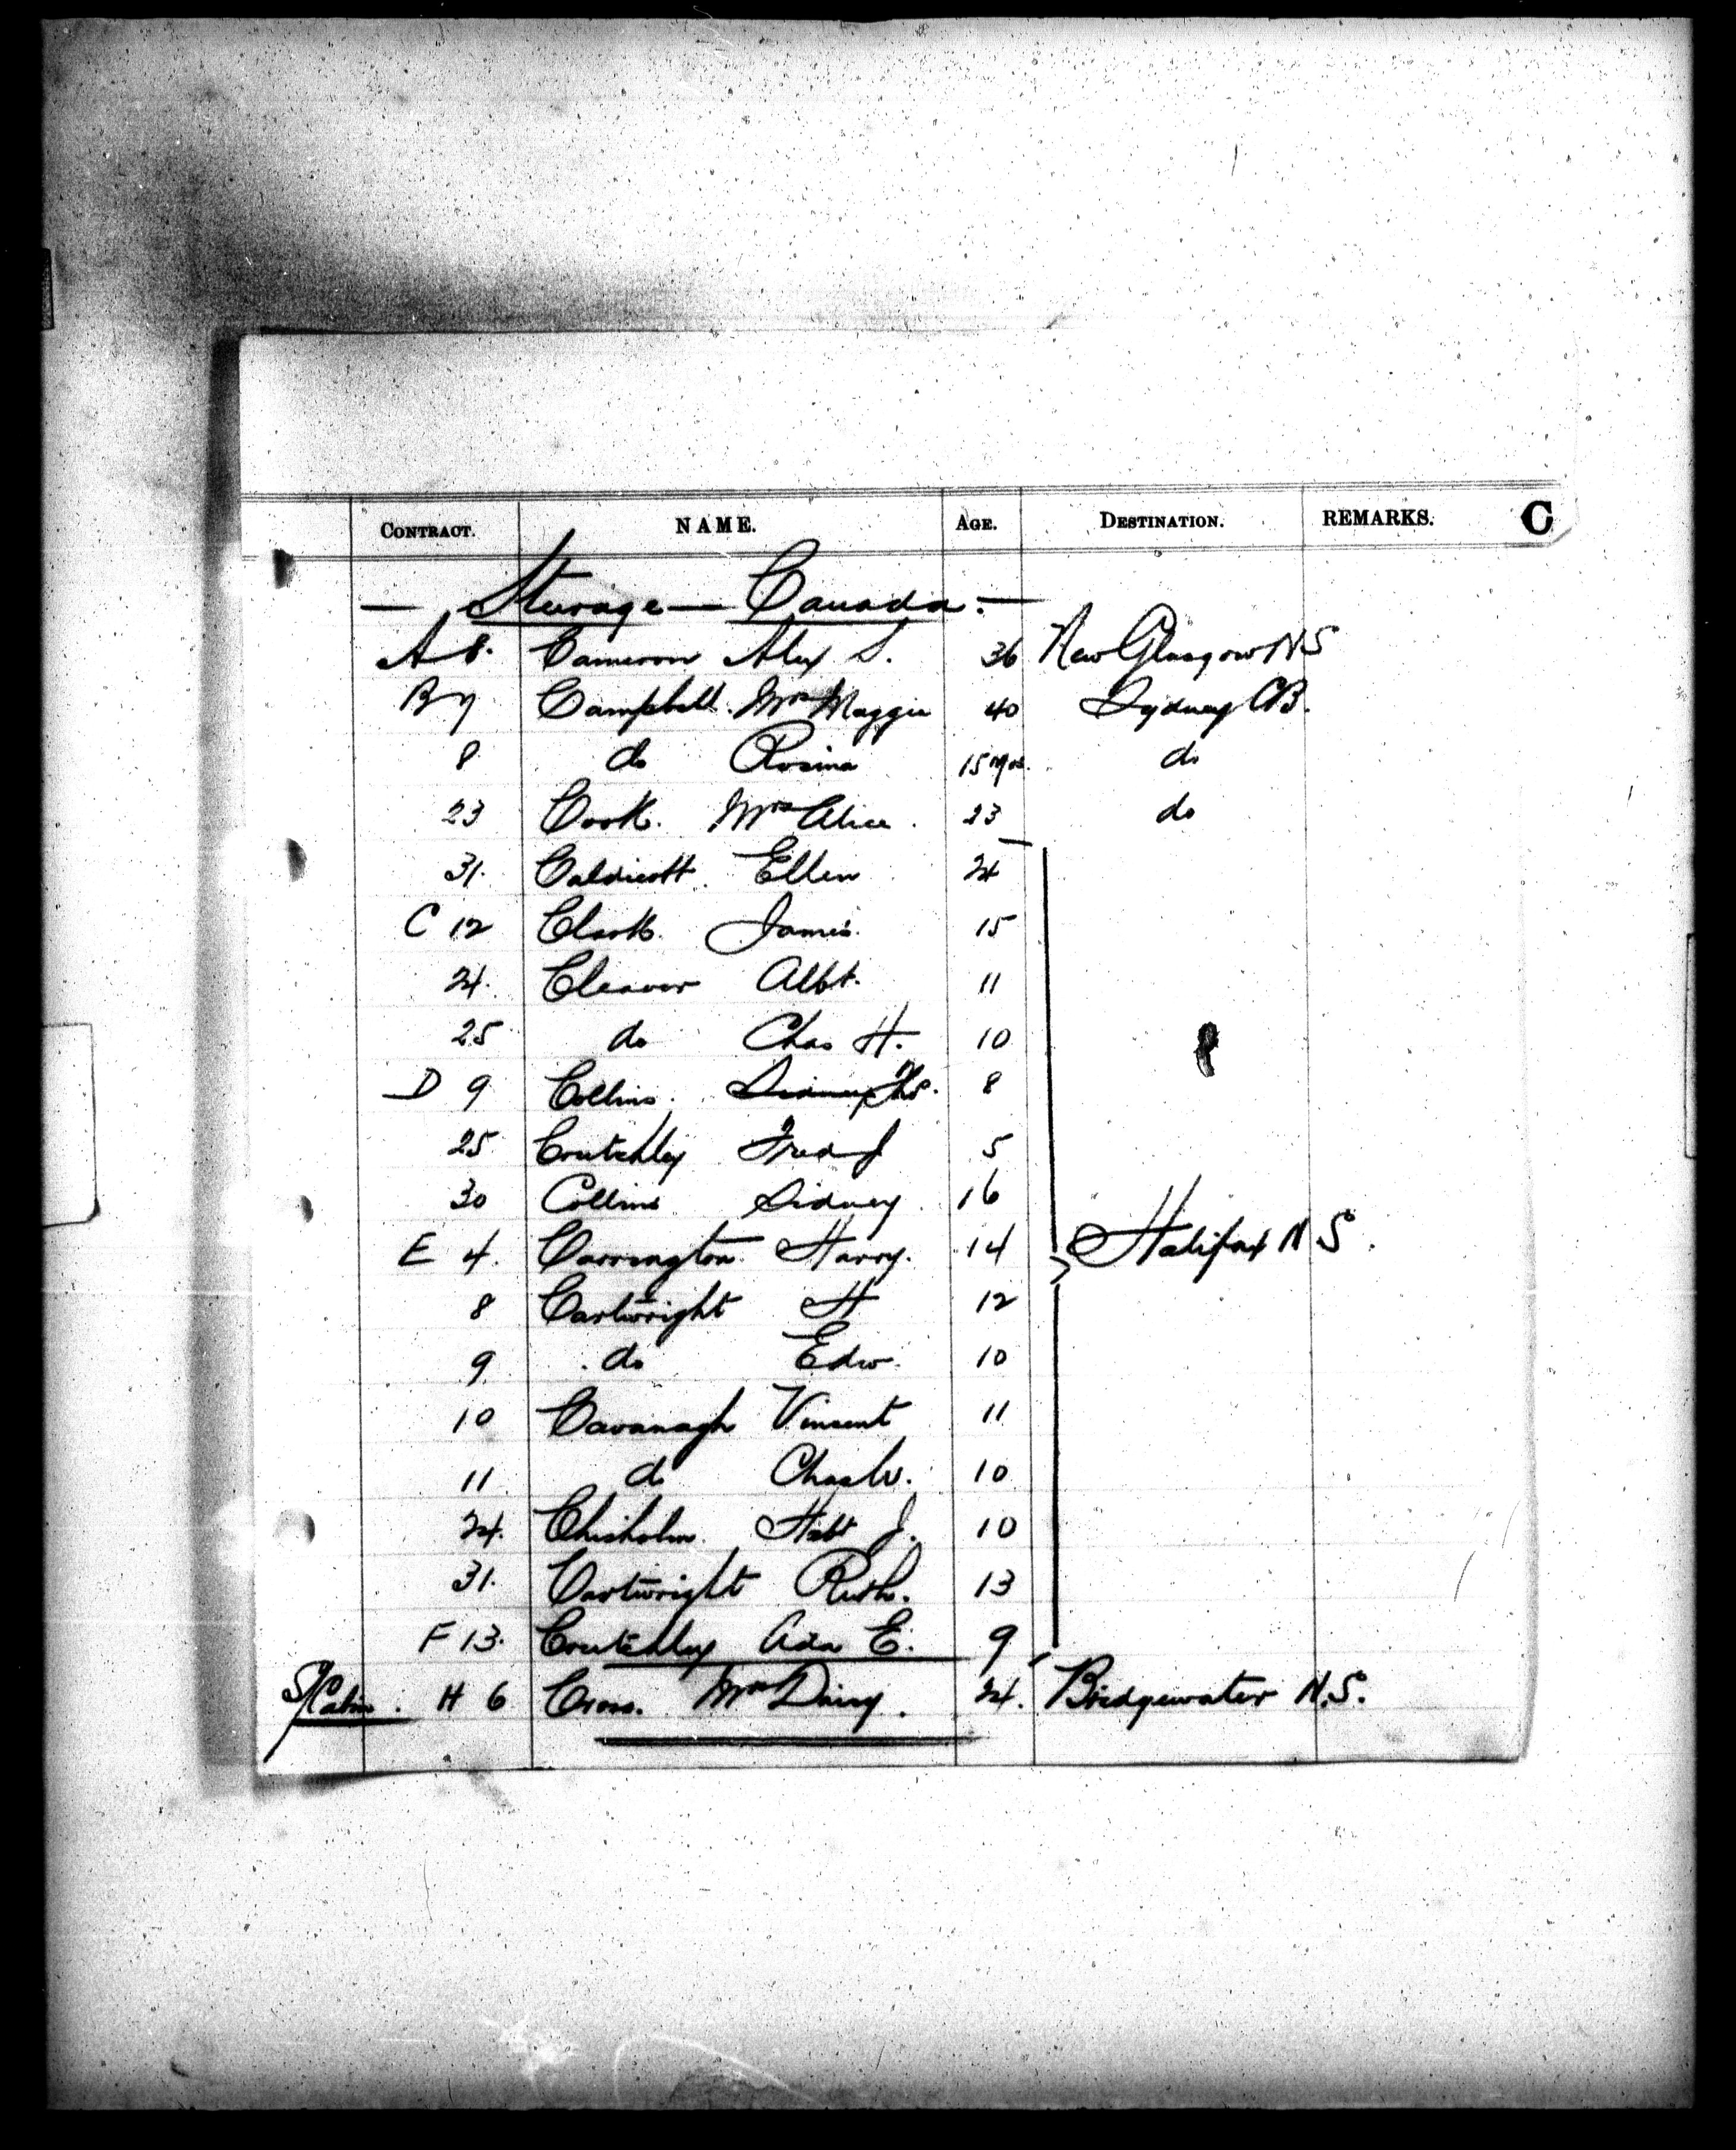 CONTRACT. NAME. AGE. DESTINATION. REMARKS. C
— Steerage — Canada. —
A 8. Cameron Alex S. 36 New Glasgow NS
B 7 Campbell. Mrs Maggie 40 Sydney CB.
8 do Rosina 15 mos. do
23 Cook. Mrs Alice. 23 do
31. Caldicott. Ellen 24
C 12 Clark. James. 15
24. Cleaver Albt. 11
25 do Chas H. 10
D 9 Collins. 8
25 Crutchley Fred J 5
30 Collins Sidney 16
E 4. Carrington. Harry. 14 Halifax N.S.
8 Cartwright H 12
9 do Edw. 10
10 Cavanagh Vincent 11
11 do Chas W. 10
24. Chisholm. Hbt J. 10
31. Cartwright Ruth. 13
F 13. Crutchley Ada E. 9
S/Cabin. H 6 Cross. Mrs Daisy. 24. Bridgewater N.S.